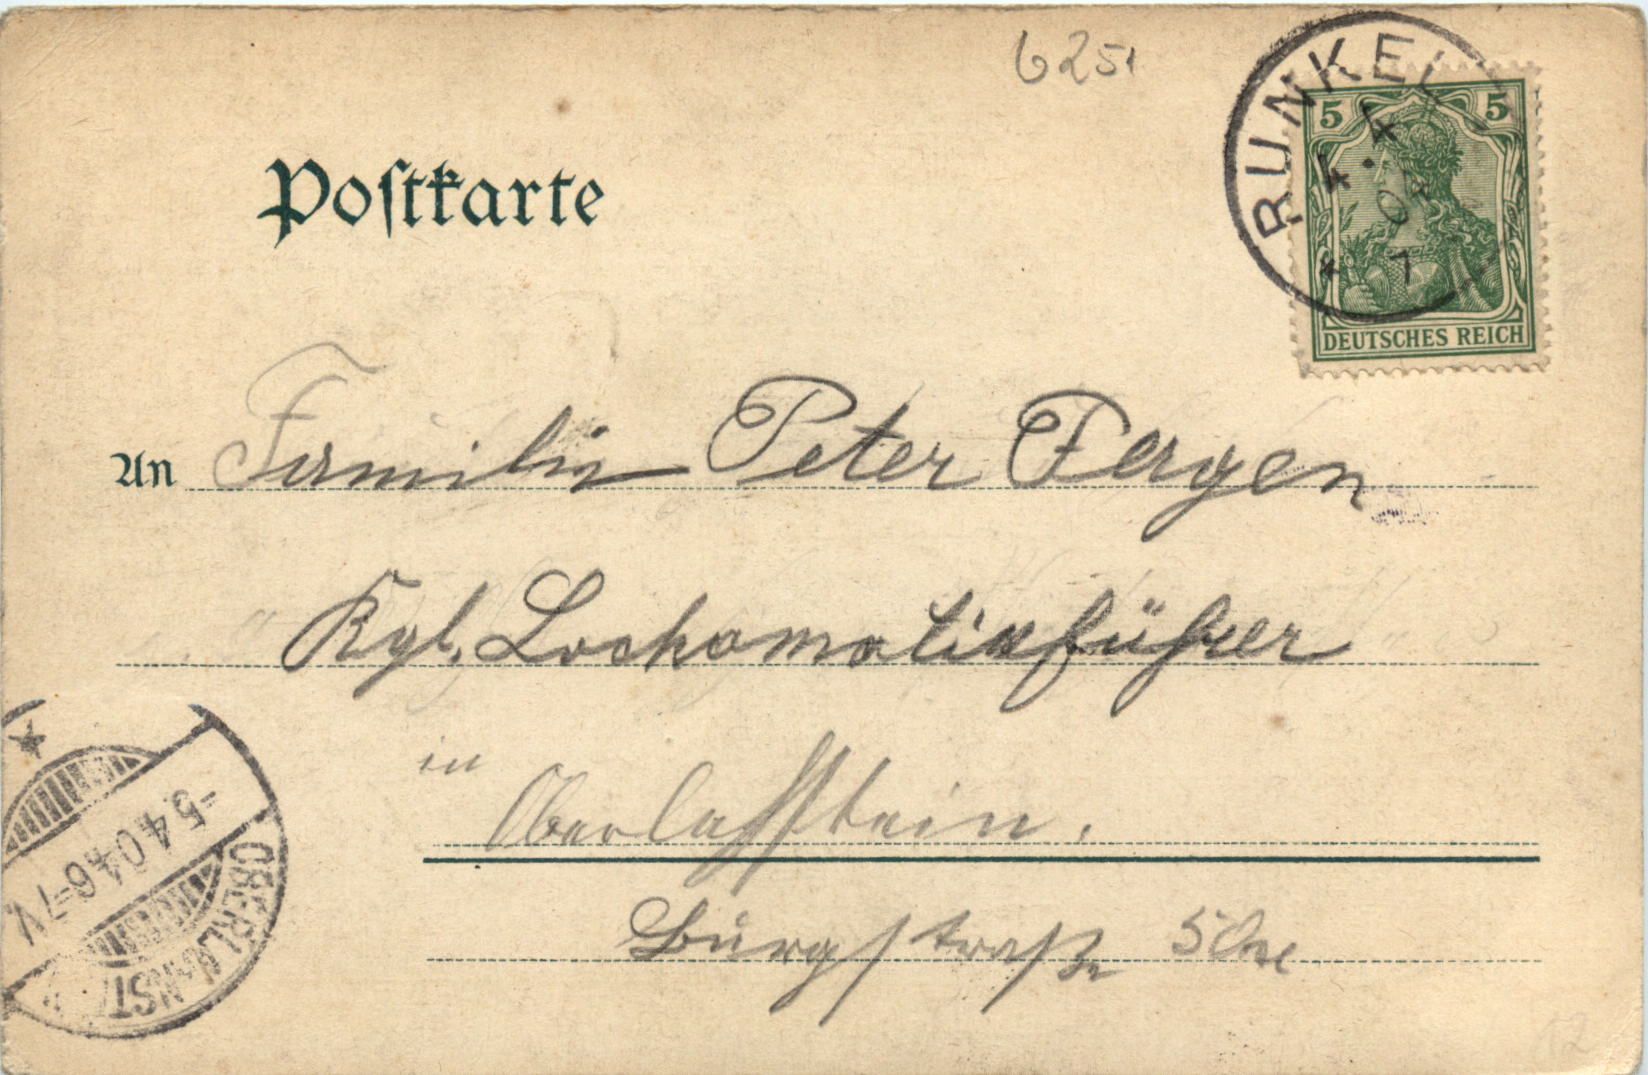 6251
RUNKEL
4.4.04
7
5 5
DEUTSCHES REICH
Postkarte
An Familie Peter Fergen
Kgl. Lockomotivführer
in Oberlahnstein.
Burgstraße 50
-5.4.04.6-7V.
OBERLAHNST
12